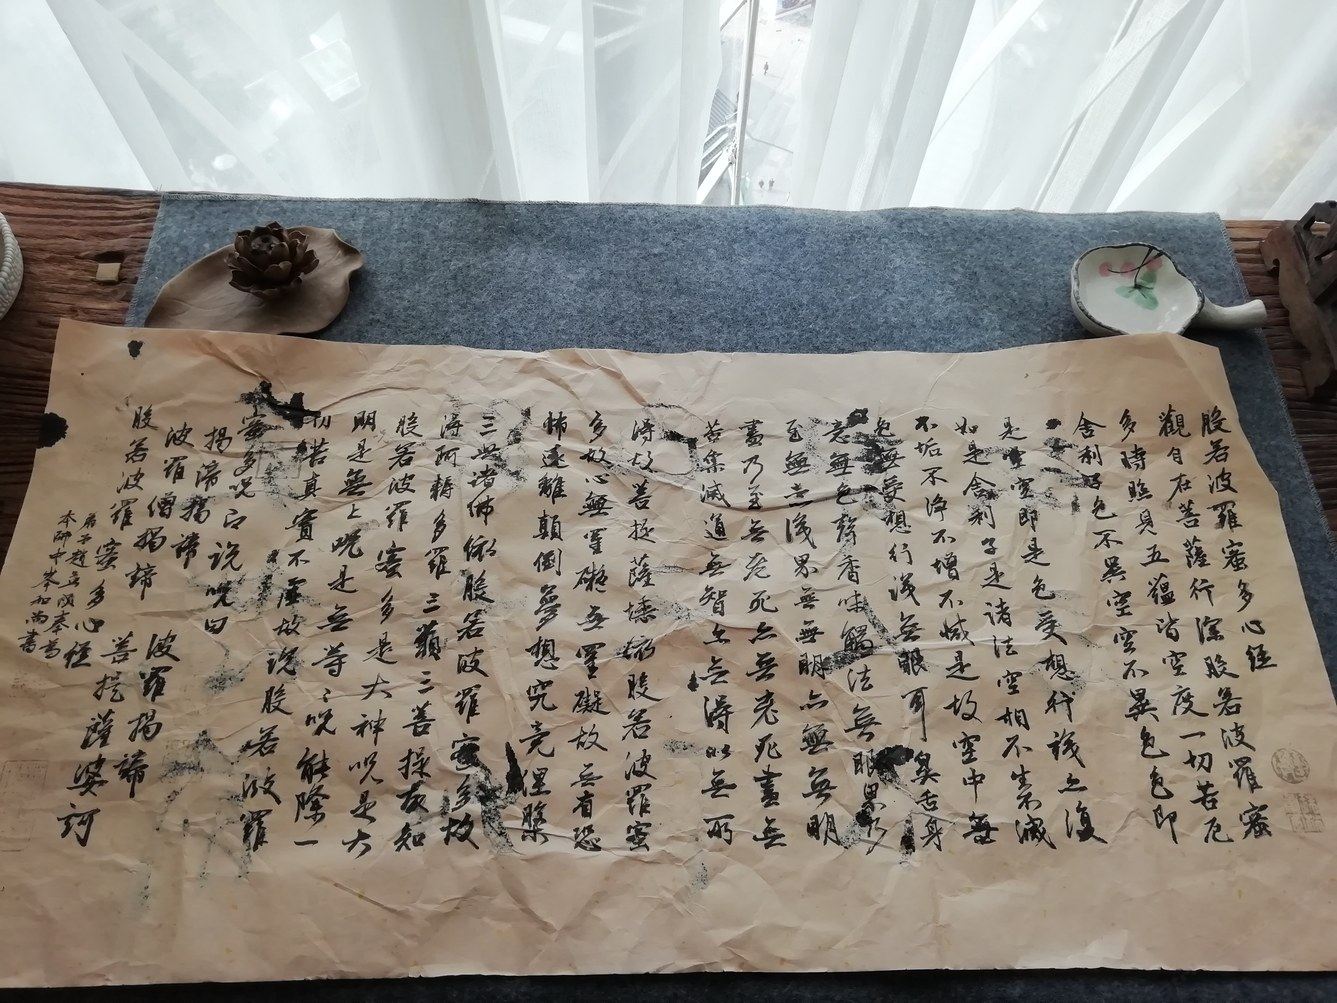 般若波羅蜜多心經
觀自在菩薩行深般若波羅蜜
多時照見五蘊皆空度一切苦厄
舍利子色不異空空不異色色即
是空空即是色受想行識亦復
如是舍利子是諸法空相不生不滅
不垢不淨不增不減是故空中無
色無受想行識無眼耳鼻舌身
意無色聲香味觸法無眼界乃
至無意識界無無明亦無無明
盡乃至无老死亦无老死盡无
苦集滅道无智亦无得以无所
得故菩提薩埵依般若波羅蜜
多故心無罣礙无罣礙故无有恐
怖遠離顛倒夢想究竟涅槃
三世諸佛依般若波羅蜜多故
得阿耨多羅三藐三菩提故知
般若波羅蜜多是大神呪是大
明是無上呪是無等〻呪能除一
切苦真實不虛故說般若波羅
蜜多呪即說呪曰
揭諦揭諦 波羅揭諦
波羅僧揭諦 菩提薩婆訶
般若波羅蜜多心經
弟子趙孟頫奉為
本師中峯和尚書